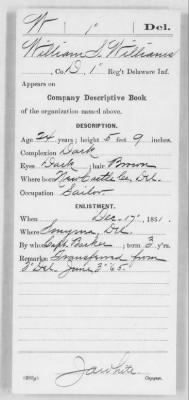 W 1 Del.
William S. Williams
Co. D, 1 Reg't Delaware Inf.
Appears on
Company Descriptive Book
of the organization named above.
DESCRIPTION.
Age 24 years; height 5 feet 9 inches.
Complexion Dark
Eyes Dark; hair Brown
Where born New Castle Co, Del.
Occupation Sailor
ENLISTMENT.
When Dec. 17, 1861.
Where Smyrna Del.
By whom Capt. Barker; term 3 y'rs.
Remarks: Transferred from
2" Del. June 3" 65.
J.A. White
Copyist.